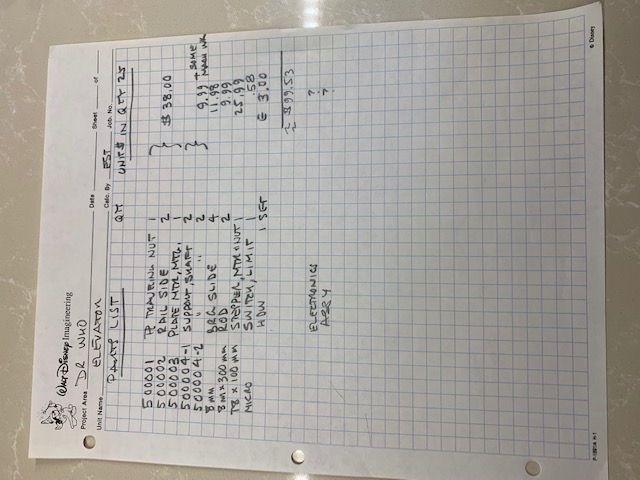 Walt Disney Imagineering
Project Area DR WHO
Date Sheet of
Unit Name ELEVATOR Calc. By EST Job. No.
PARTS LIST QTY UNIT $ IN QTY 25
500001 TRAVELING NUT 1
500002 RAIL SIDE 2 $38.00
500003 PLATE MTR, MTG, 1
500004-1 SUPPORT, SHAFT 2
500004-2 " " 2 9.99 + SOME
8mm BRG SLIDE 4 11.98
8m x 300 mm ROD 2 9.99
T8 x 100 mm STEPPER, MTR + NUT 1 25.99
MICRO SWITCH, LIMIT 1 .58
HDW 1 SET 3.00
≈ $99.53
ELECTRONICS ?
ASSY ?
© Disney